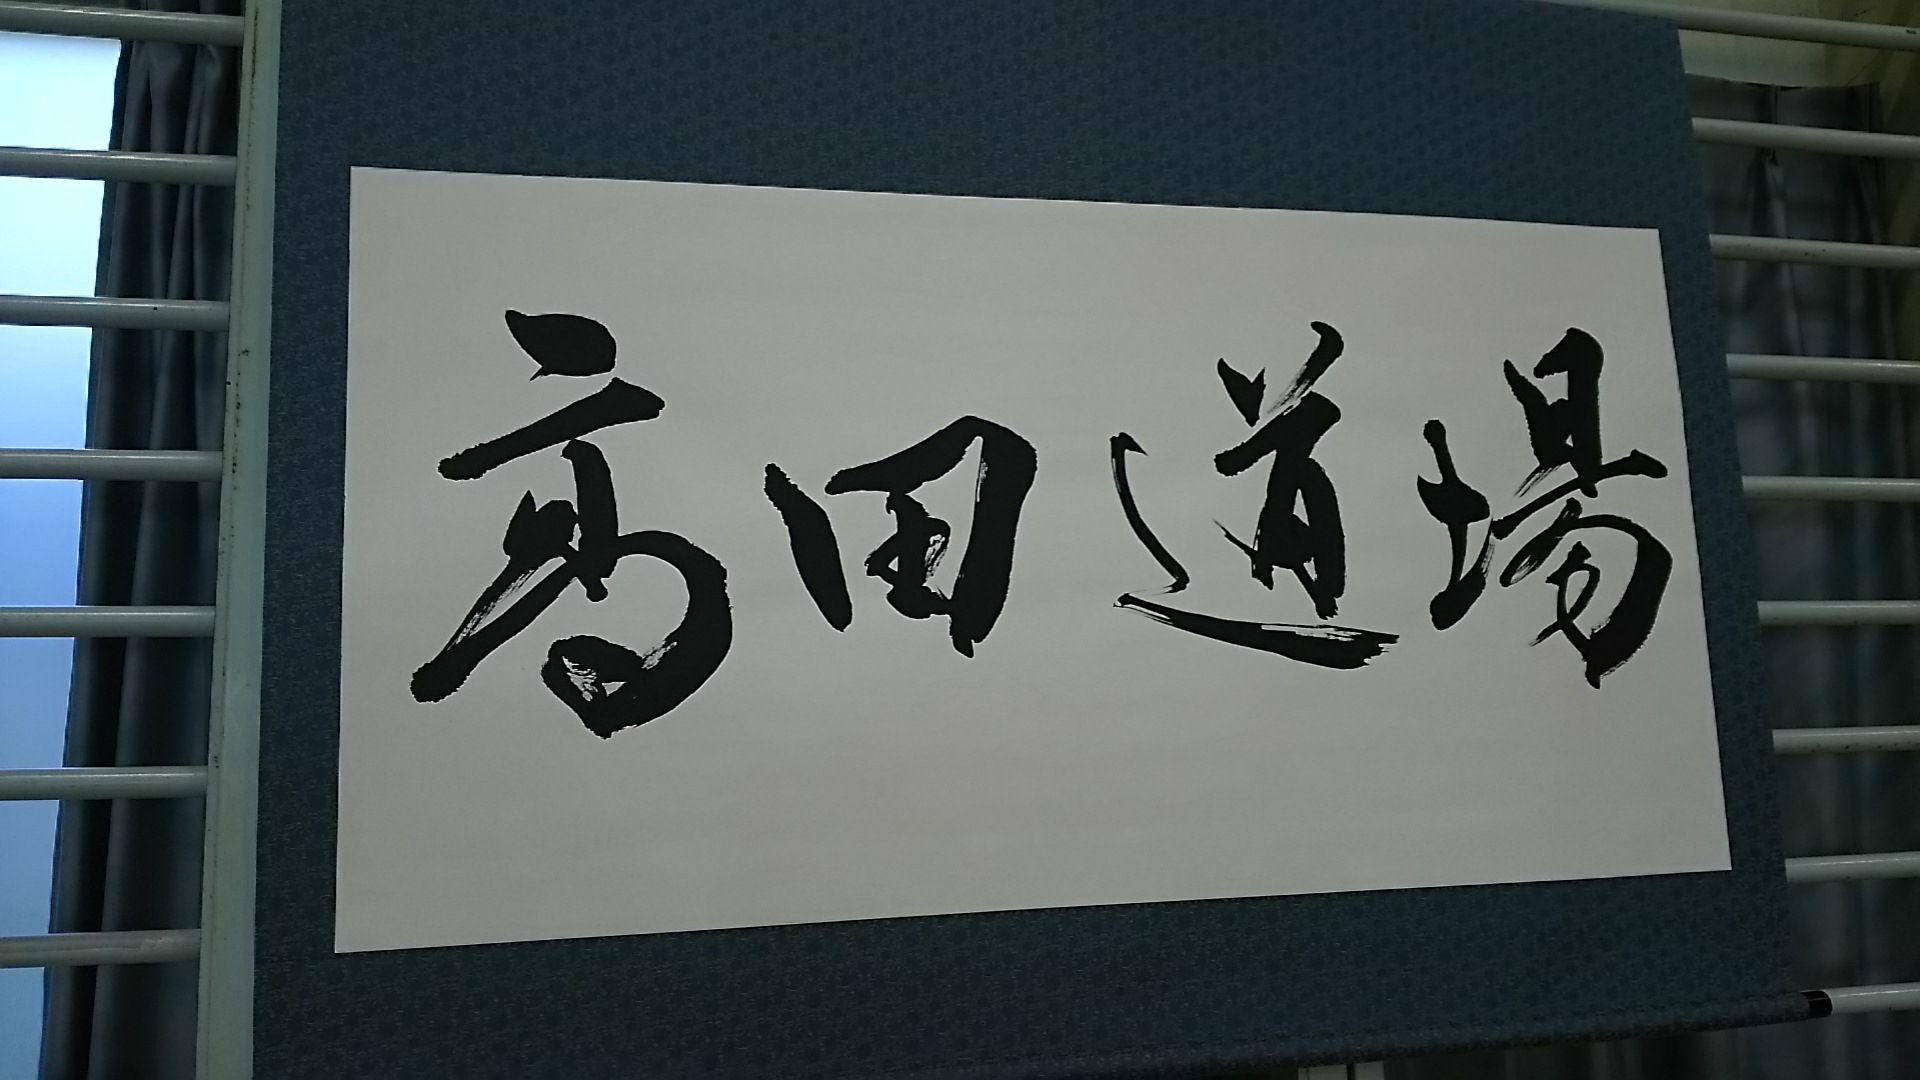 高田道場